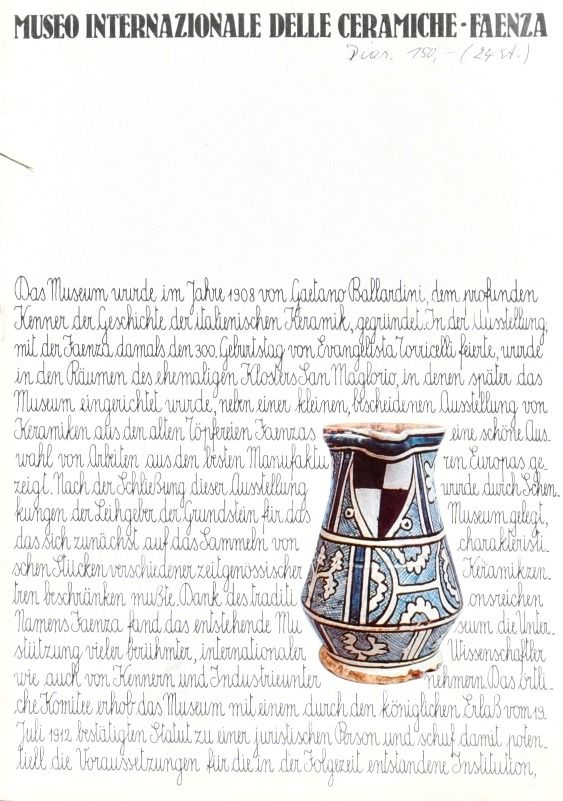 MUSEO INTERNAZIONALE DELLE CERAMICHE - FAENZA
150,- (24 st.)
Das Museum wurde im Jahre 1908 von Gaetano Ballardini, dem profunden
Kenner der Geschichte der italienischen Keramik, gegründet. In der Ausstellung,
mit der Faenza damals den 300. Geburtstag von Evangelista Torricelli feierte, wurde
in den Räumen des ehemaligen Klosters San Maglorio, in denen später das
Museum eingerichtet wurde, neben einer kleinen, bescheidenen Ausstellung von
Keramiken aus den alten Töpfereien Faenzas eine schöne Aus-
wahl von Arbeiten aus den besten Manufaktu ren Europas ge-
zeigt. Nach der Schließung dieser Ausstellung wurde durch Schen-
kungen der Leihgeber der Grundstein für das Museum gelegt,
das sich zunächst auf das Sammeln von charakteristi-
schen Stücken verschiedener zeitgenössischer Keramikzen-
tren beschränken mußte. Dank des traditi onsreichen
Namens Faenza fand das entstehende Mu seum die Unter-
stützung vieler berühmter, internationaler Wissenschaftler
wie auch von Kennern und Industrieunter nehmern. Das örtli-
che Komitee erhob das Museum mit einem durch den königlichen Erlaß vom 19.
Juli 1912 bestätigten Statut zu einer juristischen Person und schuf damit poten-
tiell die Voraussetzungen für die in der Folgezeit entstandene Institution,